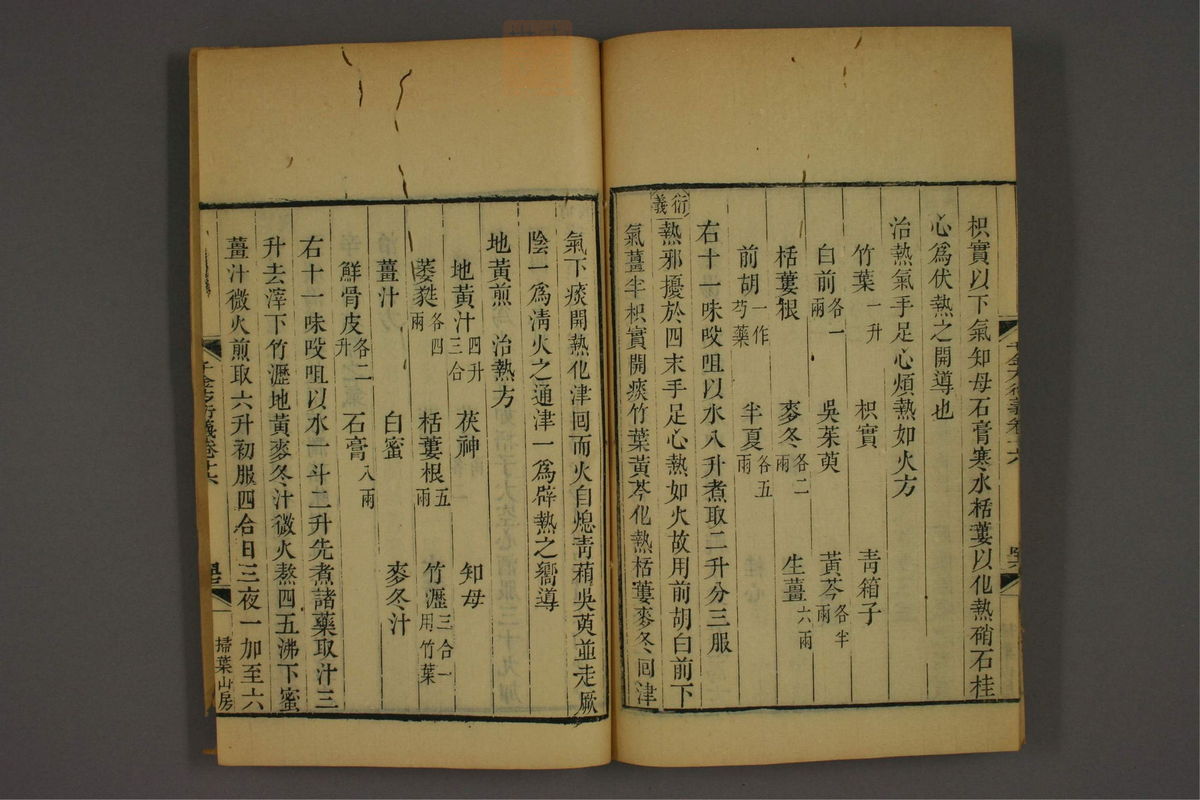 枳實以下氣知母石膏寒水栝蔞以化熱硝石桂
心爲伏熱之開導也
治熱氣手足心煩熱如火方
竹葉一升 枳實 青箱子
白前各一兩 吳茱萸 黃芩各半兩
栝蔞根 麥冬各二兩 生薑六兩
前胡一作芍藥 半夏各五兩
右十一味㕮咀以水八升煮取二升分三服
衍義 熱邪擾於四末手足心熱如火故用前胡白前下
氣薑半枳實開痰竹葉黃芩化熱栝蔞麥冬回津
氣下痰開熱化津回而火自熄青葙吳萸並走厥
陰一爲淸火之通津一爲辟熱之嚮導
地黃煎 治熱方
地黃汁四升三合 茯神 知母
萎蕤各四兩 栝蔞根五兩 竹瀝三合一用竹葉
薑汁 白蜜 麥冬汁
鮮骨皮各二升 石膏八兩
右十一味㕮咀以水一斗二升先煮諸藥取汁三
升去滓下竹瀝地黃麥冬汁微火熬四五沸下蜜
薑汁微火煎取六升初服四合日三夜一加至六
掃葉山房